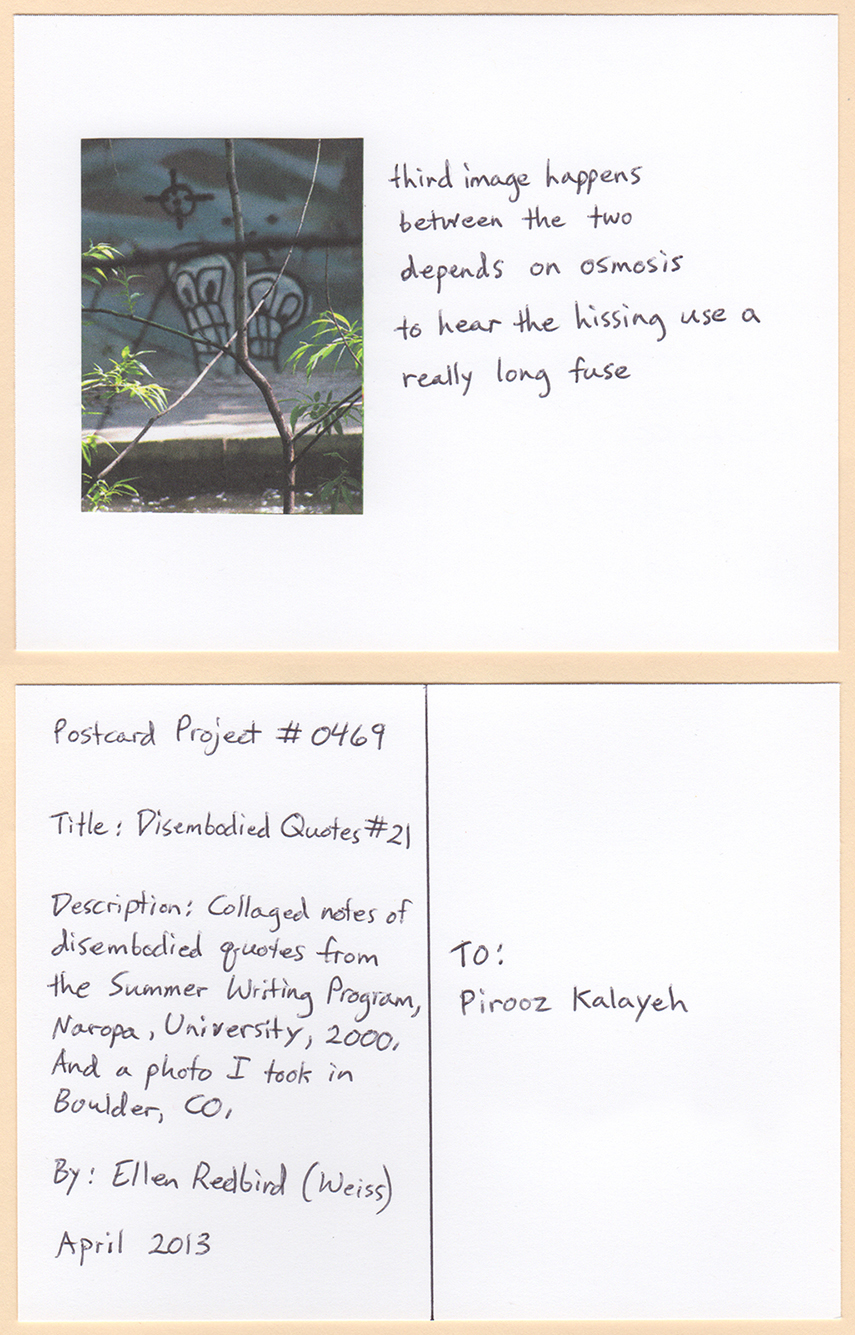 third image happens
between the two
depends on osmosis
to hear the hissing use a
really long fuse
Postcard Project # 0469
Title: Disembodied Quotes #21
Description: Collaged notes of
disembodied quotes from
the Summer Writing Program,
Naropa, University, 2000.
And a photo I took in
Boulder, CO,
By: Ellen Redbird (Weiss)
April 2013
TO:
Pirooz Kalayeh